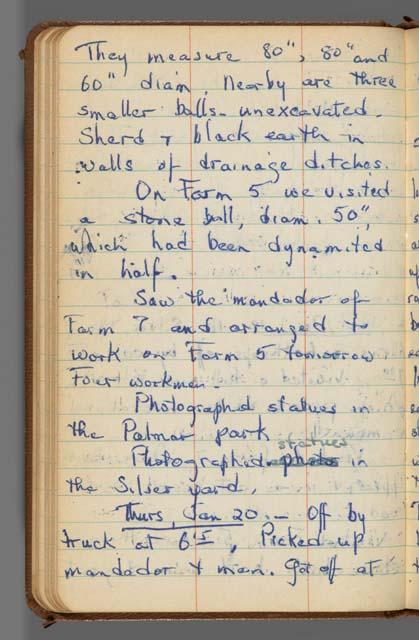 They measure 80", 80" and
60" diam. Nearby are three
smaller balls - unexcavated.
Sherd + black earth in
walls of drainage ditches.
On Farm 5 we visited
a stone ball, diam. 50",
which had been dynamited
in half.
Saw the mandador of
Farm 7 and arranged to
work on Farm 5 tomorrow
Four workmen.
Photographed statues in
the Palmar park
statues
Photographed photo in
the Silver yard.
Thurs, Jan 20. - Off by
truck at 6, Picked up
mandador + men. Got off at